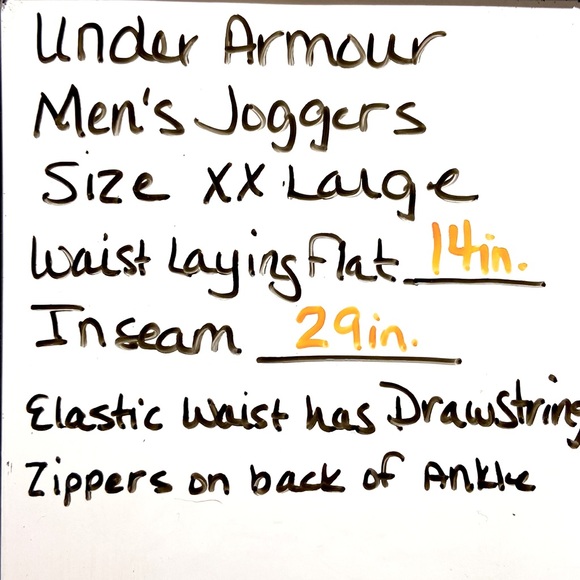 Under Armour
Men's Joggers
Size XX Large
Waist Laying Flat 14in.
Inseam 29in.
Elastic Waist has Drawstring
Zippers on back of Ankle